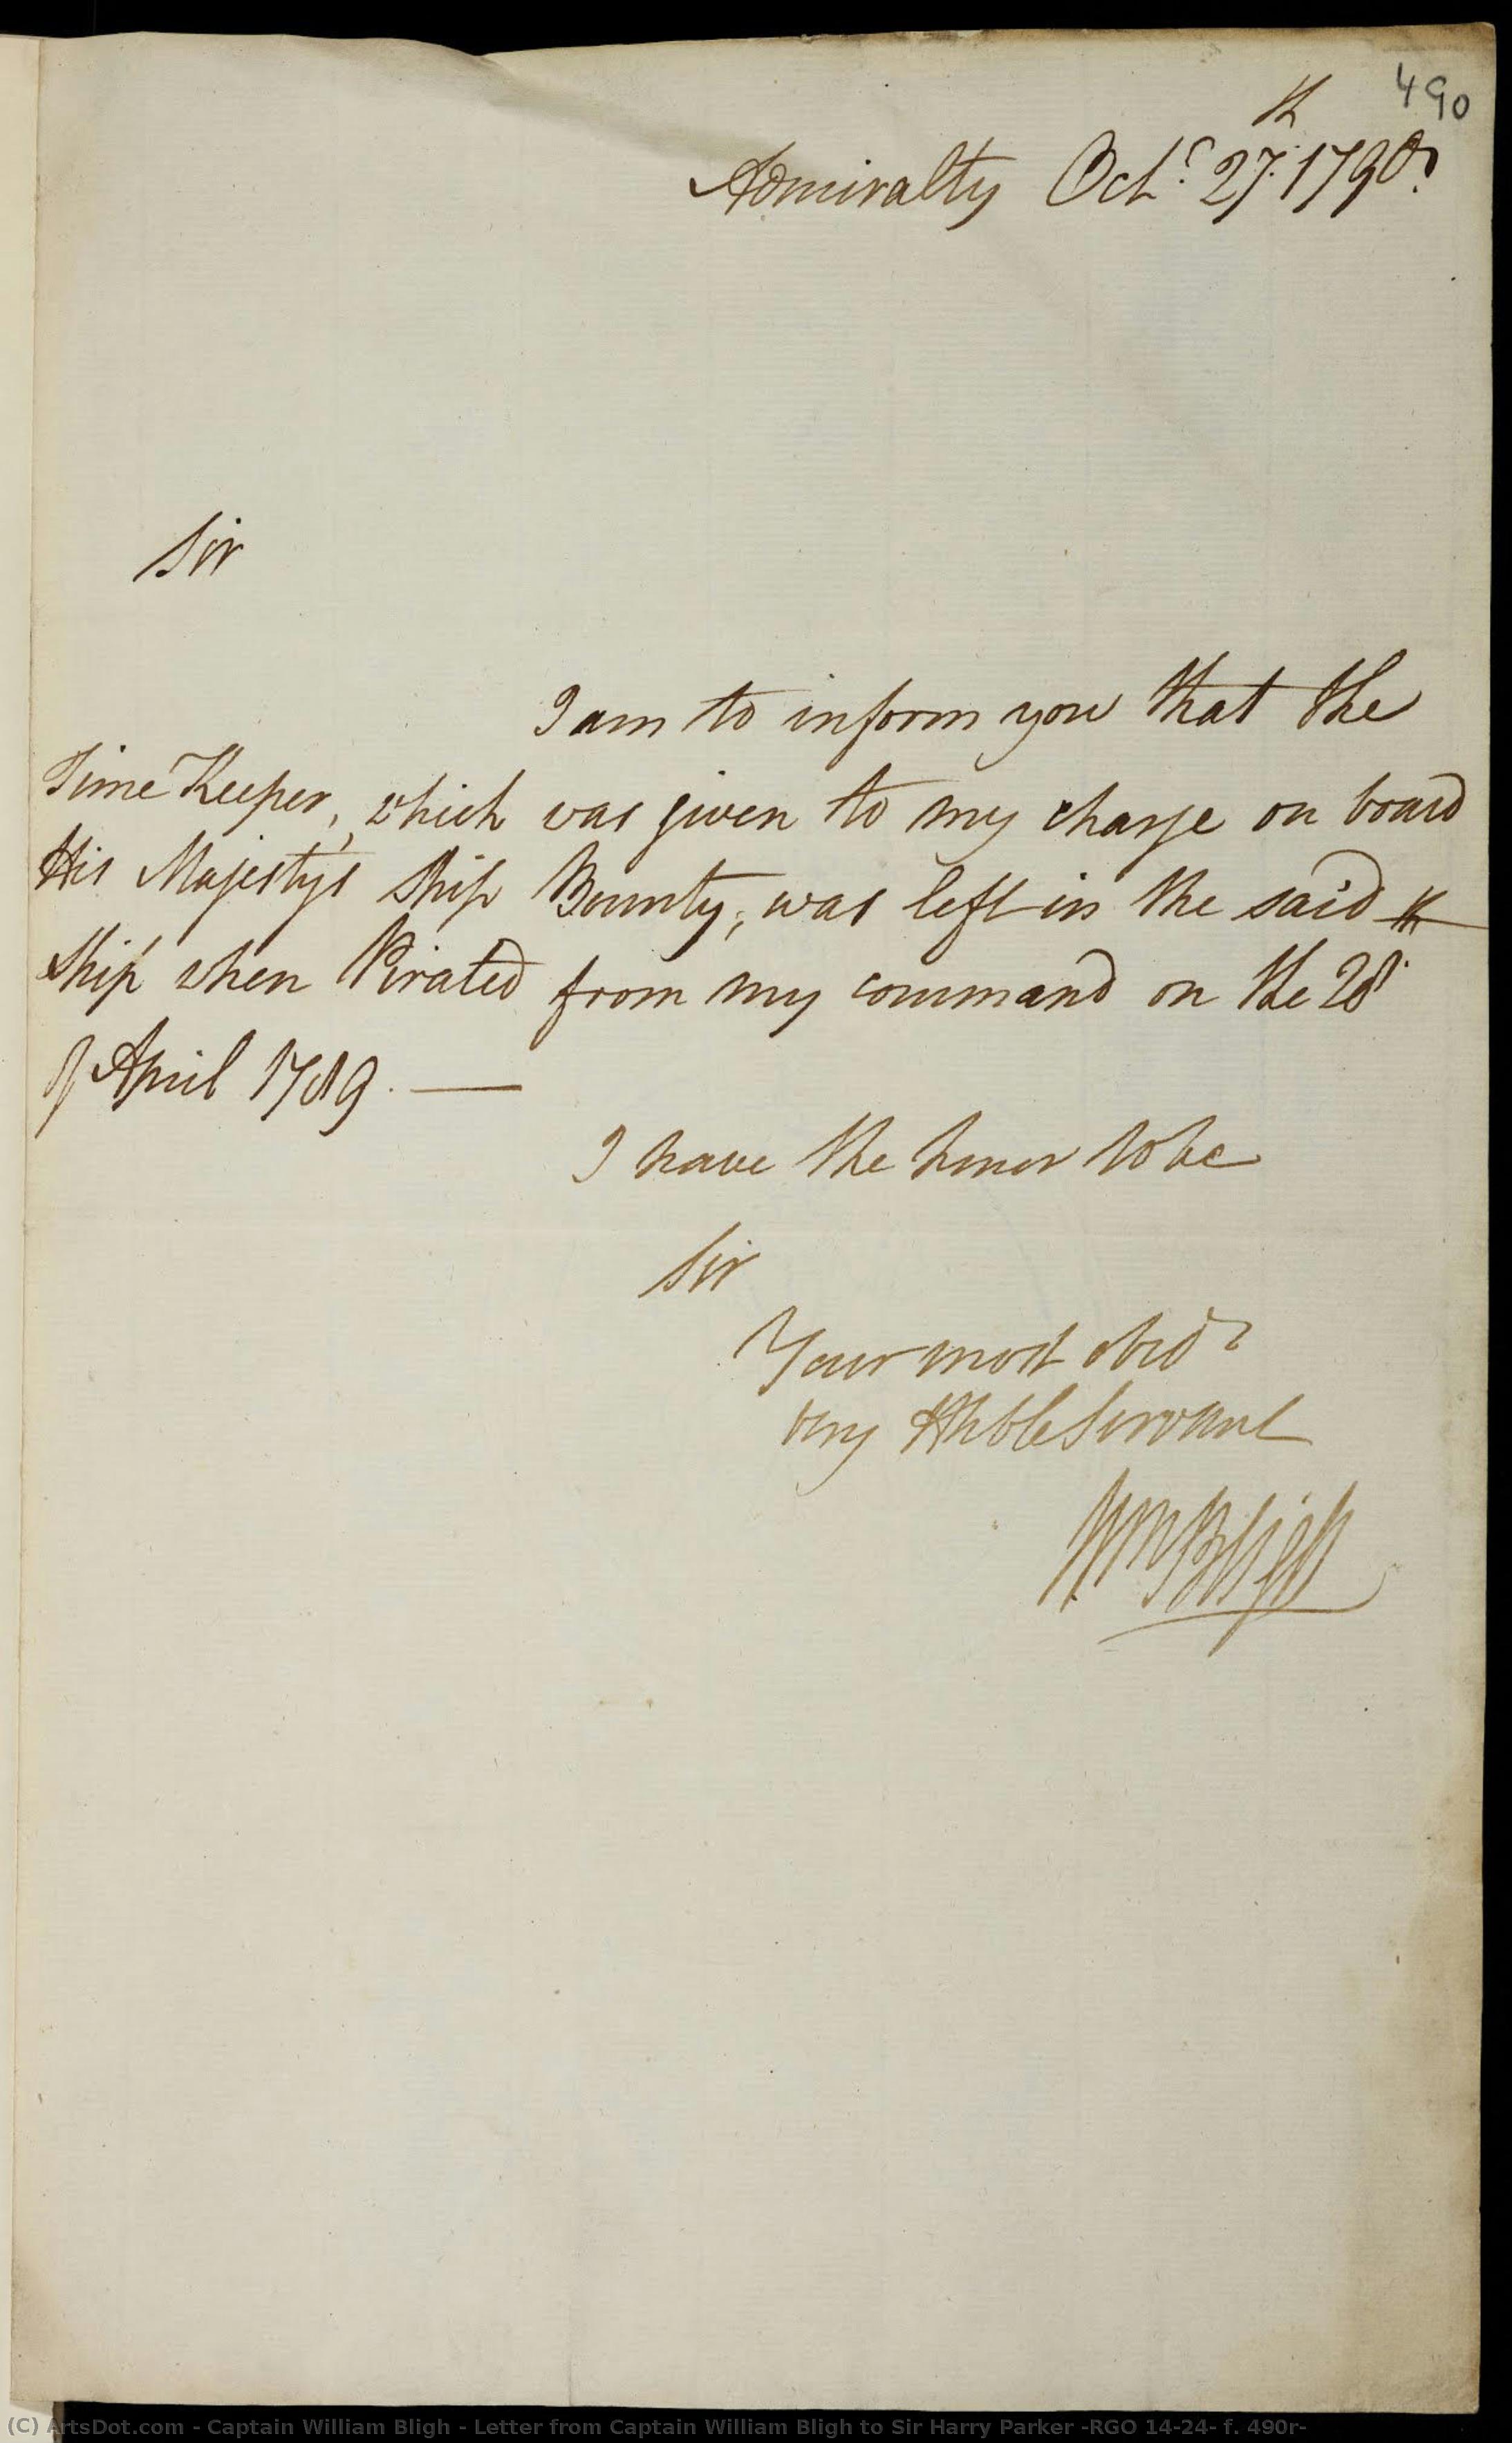 490
Admiralty Octr. 27th. 1790.
Sir
I am to inform you that the
Time Keeper, which was given to my charge on board
His Majesty's Ship Bounty, was left in the said
Ship when Pirated from my command on the 28th
of April 1789. —
I have the honor to be
Sir
Your most obedt
very Hmble Servant
Wm Bligh
(C) ArtsDot.com - Captain William Bligh - Letter from Captain William Bligh to Sir Harry Parker -RGO 14-24- f. 490r-